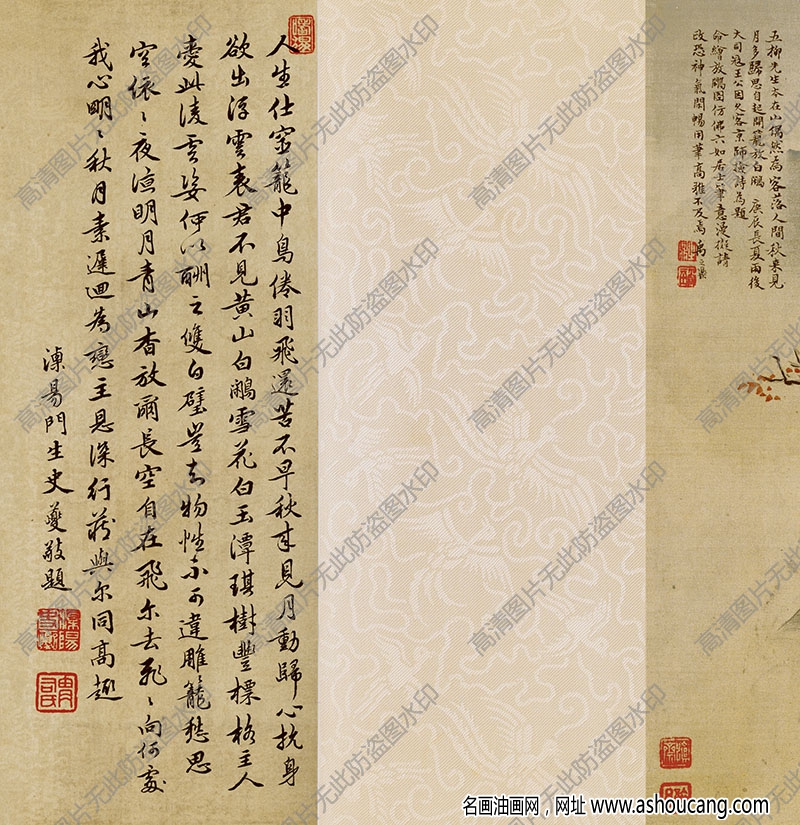 五柳先生本在山偶然為客落人間秋來見
月多歸思自起開籠放白鷳 庚辰長夏雨後
大司寇王公因久客京師檢詩為題
命繪放鷳圖仿佛六如居士筆意漫擬請
政恐神氣閒暢用筆高雅不及焉 禹之鼎
人生仕宦籠中鳥倦羽飛還苦不早秋來見月動歸心抗身
欲出浮雲表君不見黃山白鷳雪花白玉潭琪樹豐標格主人
愛此淩雲姿何以酬之雙白璧豈知物性不可違雕籠愁思
空依〻夜涼明月青山杳放爾長空自在飛尔去飛〻向何處
我心明〻秋月素遲迴為戀主恩深行藏與尔同高趣
漷易門生史夔敬題
高清图片无此防盗图水印
名画油画网，网址 www.ashoucang.com